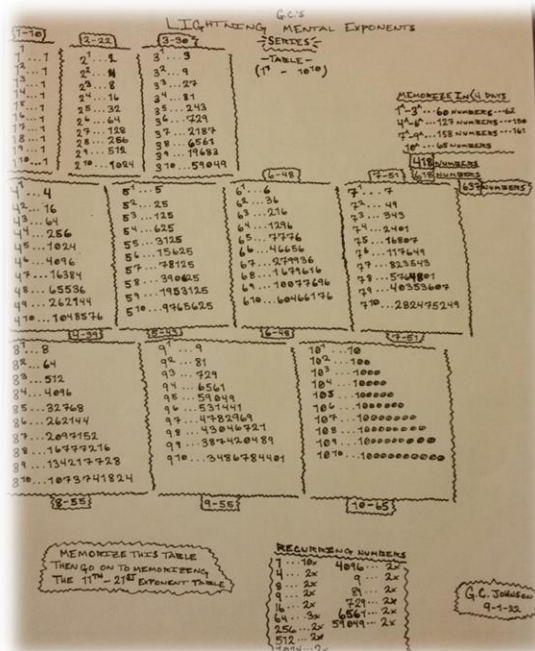 G.C.'S
LIGHTNING MENTAL EXPONENTS
SERIES
-TABLE-
(1¹ - 10¹⁰)
(1-10)
1¹...1
1²...1
1³...1
1⁴...1
1⁵...1
1⁶...1
1⁷...1
1⁸...1
1⁹...1
1¹⁰...1
(2-22)
2¹...2
2²...4
2³...8
2⁴...16
2⁵...32
2⁶...64
2⁷...128
2⁸...256
2⁹...512
2¹⁰...1024
(3-30)
3¹...3
3²...9
3³...27
3⁴...81
3⁵...243
3⁶...729
3⁷...2187
3⁸...6561
3⁹...19683
3¹⁰...59049
MEMORIZE IN (4 DAYS
60 NUMBERS
127 NUMBERS
158 NUMBERS
65 NUMBERS
418 NUMBERS
618 NUMBERS
637 NUMBERS
4¹...4
4²...16
4³...64
4⁴...256
4⁵...1024
4⁶...4096
4⁷...16384
4⁸...65536
4⁹...262144
4¹⁰...1048576
(4-39)
5¹...5
5²...25
5³...125
5⁴...625
5⁵...3125
5⁶...15625
5⁷...78125
5⁸...390625
5⁹...1953125
5¹⁰...9765625
(5-43)
(6-48)
6¹...6
6²...36
6³...216
6⁴...1296
6⁵...7776
6⁶...46656
6⁷...279936
6⁸...1679616
6⁹...10077696
6¹⁰...60466176
(6-48)
(7-51)
7¹...7
7²...49
7³...343
7⁴...2401
7⁵...16807
7⁶...117649
7⁷...823543
7⁸...5764801
7⁹...40353607
7¹⁰...282475249
(7-51)
8¹...8
8²...64
8³...512
8⁴...4096
8⁵...32768
8⁶...262144
8⁷...2097152
8⁸...16777216
8⁹...134217728
8¹⁰...1073741824
(8-55)
9¹...9
9²...81
9³...729
9⁴...6561
9⁵...59049
9⁶...531441
9⁷...4782969
9⁸...43046721
9⁹...387420489
9¹⁰...3486784401
(9-55)
10¹...10
10²...100
10³...1000
10⁴...10000
10⁵...100000
10⁶...1000000
10⁷...10000000
10⁸...100000000
10⁹...1000000000
10¹⁰...10000000000
(10-65)
MEMORIZE THIS TABLE
THEN GO ON TO MEMORIZENG
THE 11TH - 21ST EXPONENT TABLE
RECURRING NUMBERS
1...10x
4...2x
8...2x
9...2x
16...2x
64...3x
256...2x
512...2x
1024...2x
4096...2x
9...2x
81...2x
729...2x
6561...2x
59049...2x
G.C. JOHNSON
9-1-22